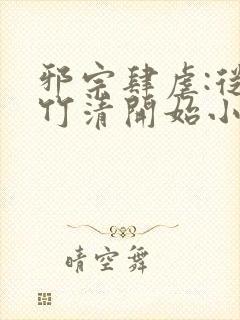 邪宗肆虐:從
竹清開始小
晴空舞